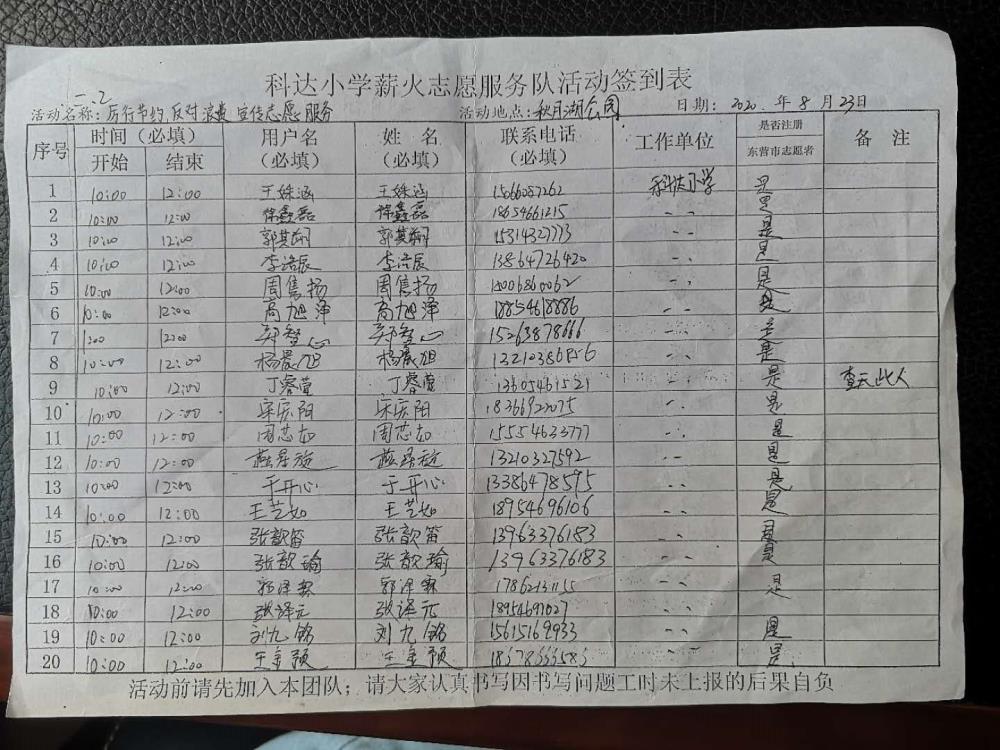 科达小学薪火志愿服务队活动签到表
一.2
活动名称：厉行节约,反对浪费 宣传志愿服务 活动地点：秋月湖公园 日期：2020.年8月23日
序号 时间（必填） 开始 结束 用户名（必填） 姓名（必填） 联系电话（必填） 工作单位 是否注册东营市志愿者 备注
1 10:00 12:00 王姝涵 王姝涵 15066087262 科达小学 是
2 10:00 12:00 徐鑫磊 徐鑫磊 18654661215 是
3 10:00 12:00 郭其翮 郭其翮 15314327713 是
4 10:00 12:00 李浩辰 李浩辰 13864726420 是
5 10:00 12:00 周隽扬 周隽扬 15006860062 是
6 10:00 12:00 高旭泽 高旭泽 18854618886 是
7 12:00 郑智心 郑智心 15263878666 是
8 10:00 12:00 杨晨旭 杨晨旭 13210386856 是
9 10:00 12:00 丁睿萱 丁睿萱 13605461521 是 查无此人
10 10:00 12:00 宋庆阳 宋庆阳 18366922075 是
11 10:00 12:00 周芯如 周芯如 15554633777 是
12 10:00 12:00 13210327592 是
13 10:00 12:00 于开心 于开心 13386478595 是
14 10:00 12:00 王艺如 王艺如 18954696106 是
15 10:00 12:00 张歆笛 张歆笛 13963376183 是
16 10:00 12:00 张歆瑜 张歆瑜 13963376183 是
17 10:00 12:00 郭泽霖 郭泽霖 是
18 10:00 12:00 张译元 张译元 18954691027
19 10:00 12:00 刘九铭 刘九铭 15615169933 是
20 10:00 12:00 王奎颐 王奎颐 是
活动前请先加入本团队；请大家认真书写因书写问题工时未上报的后果自负